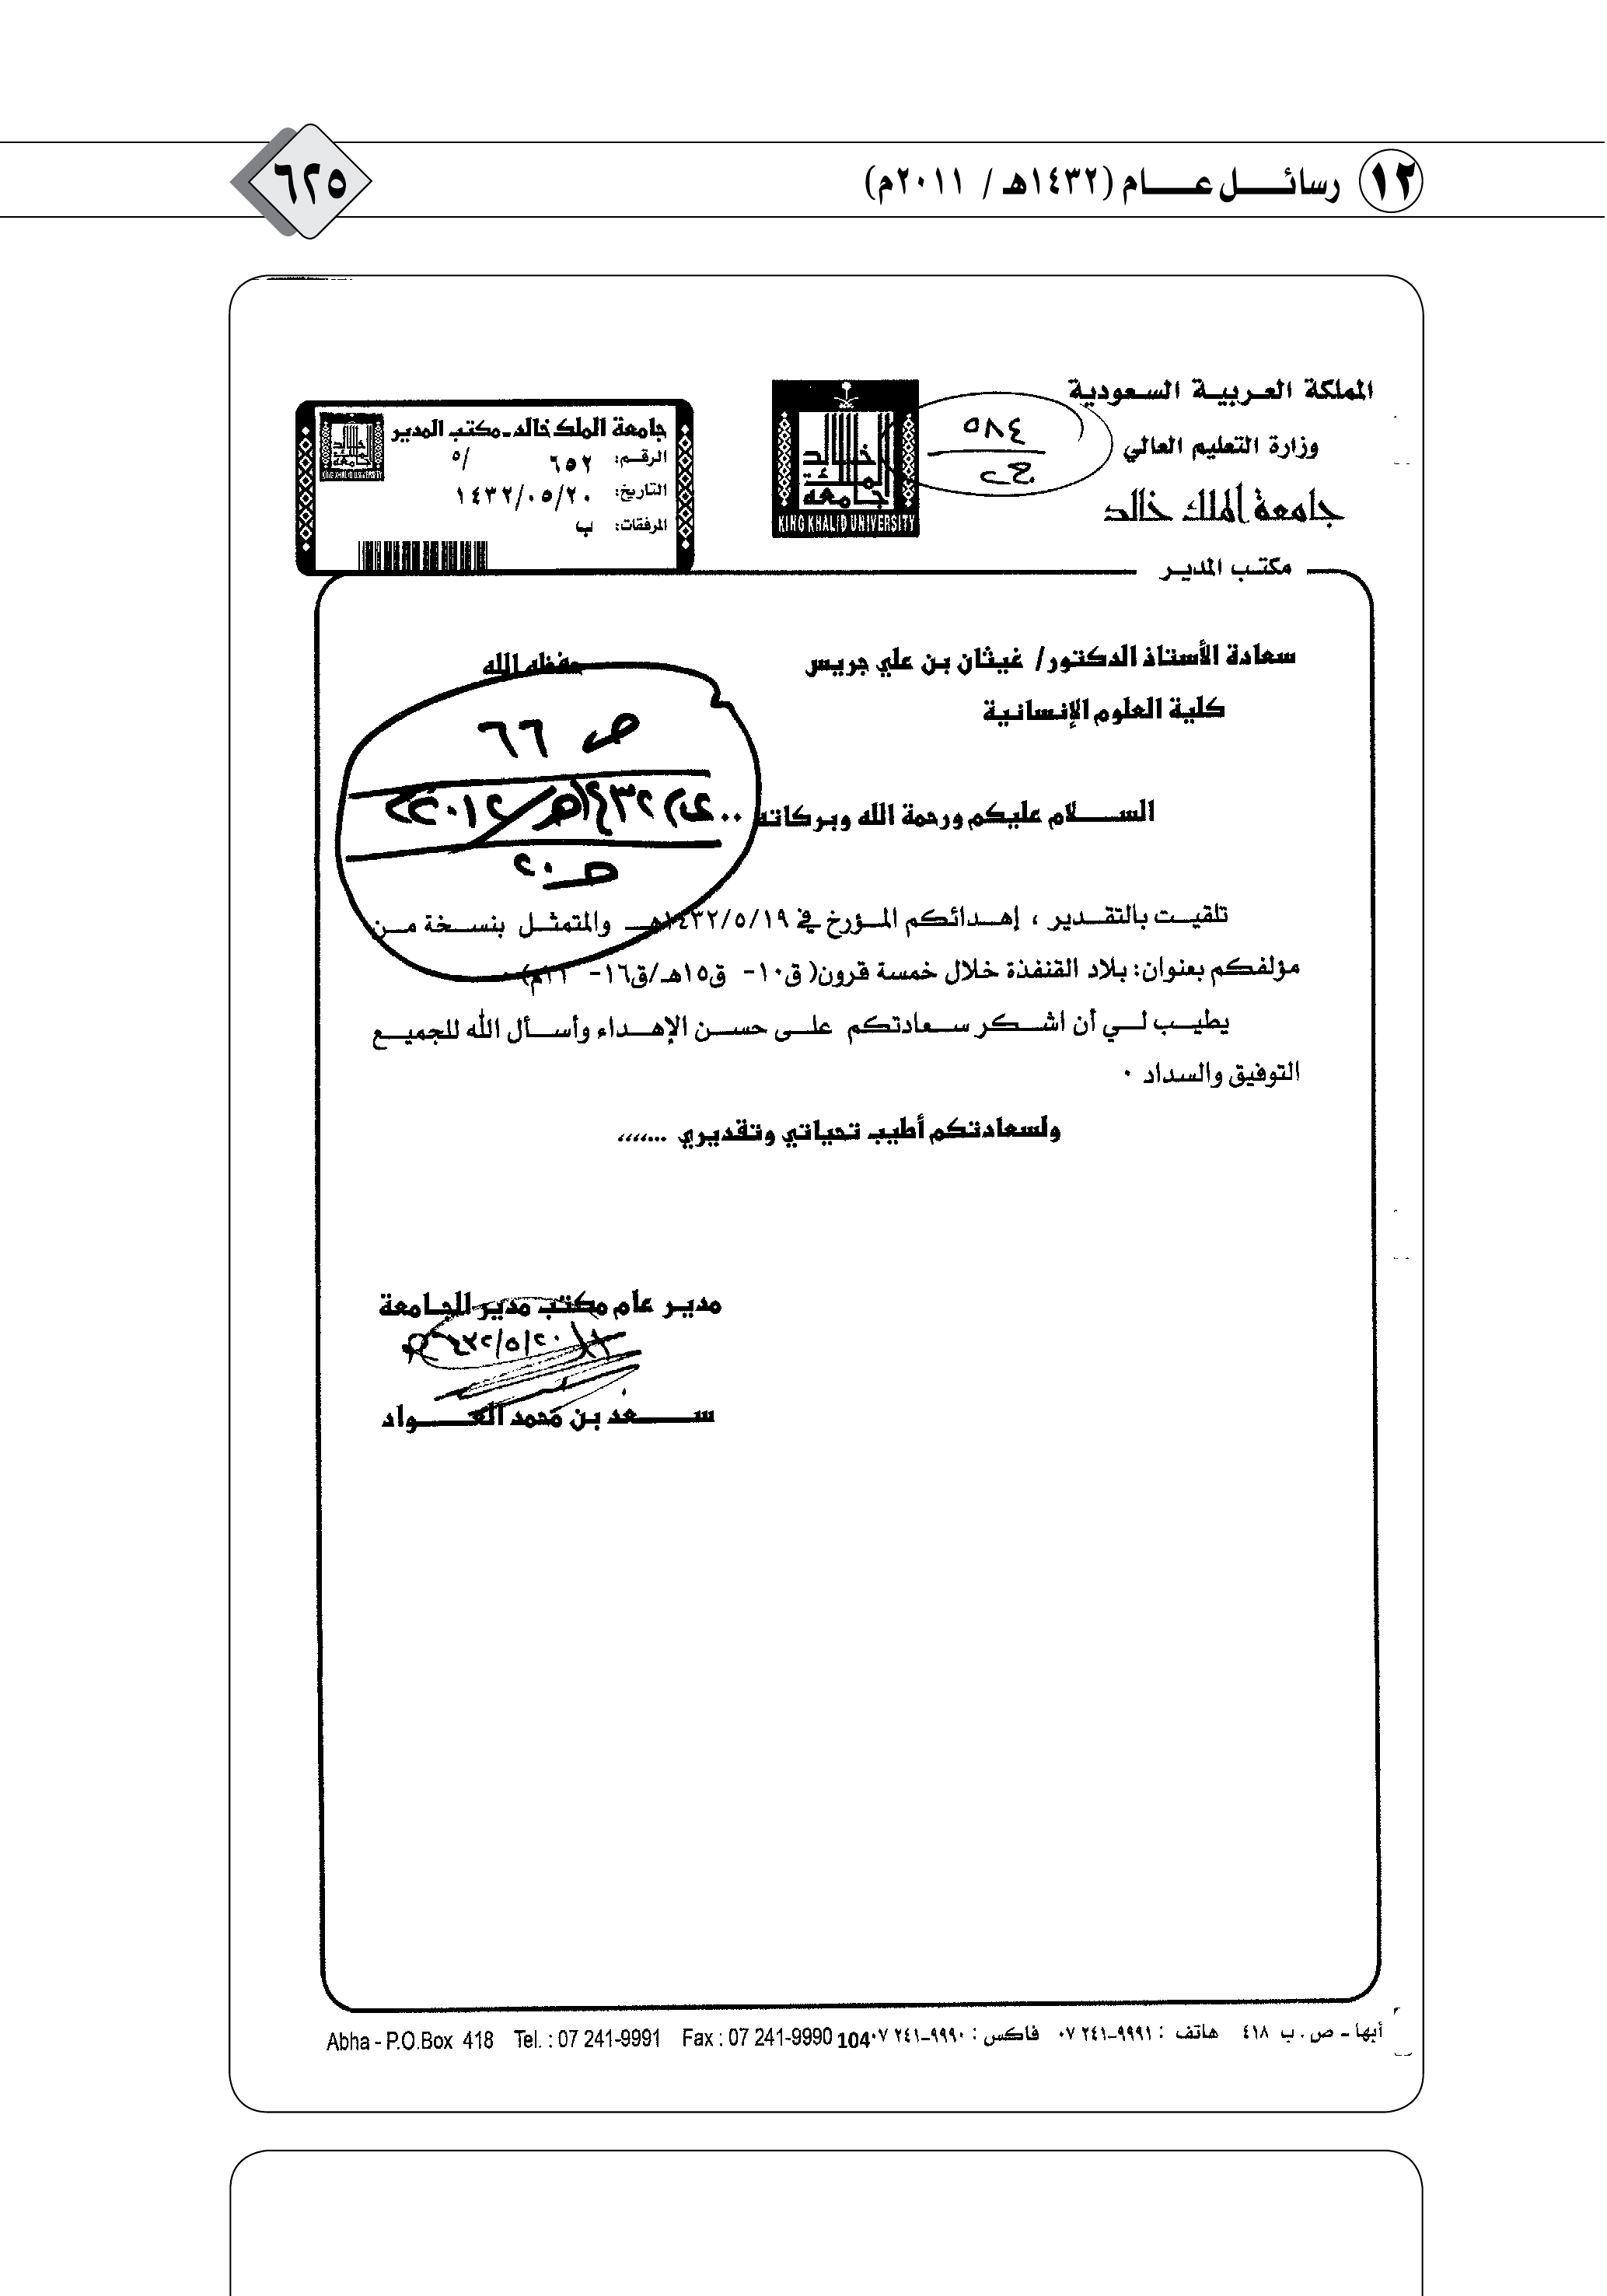 ١٢ رسائل عام (١٤٣٢هـ / ٢٠١١م)
٦٢٥
المملكة العربية السعودية
وزارة التعليم العالي
جامعة الملك خالد
مكتب المدير
٥٨٤
جامعة الملك خالد
KING KHALID UNIVERSITY
جامعة الملك خالد - مكتب المدير
الرقم: ٦٥٢ /٥
التاريخ: ١٤٣٢/٠٥/٢٠
المرفقات: ب
سعادة الأستاذ الدكتور/ غيثان بن علي جريس حفظه الله
كلية العلوم الإنسانية
ص ٦٦
السلام عليكم ورحمة الله وبركاته ..
تلقيت بالتقدير ، إهدائكم المؤرخ في ١٤٣٢/٥/١٩هـ والمتمثل بنسخة من
مؤلفكم بعنوان: بلاد القنفذة خلال خمسة قرون( ق١٠- ق١٥هـ/ق١٦- ٢١م) .
يطيب لي أن اشكر سعادتكم على حسن الإهداء وأسأل الله للجميع
التوفيق والسداد .
ولسعادتكم أطيب تحياتي وتقديري ...،،،،
مدير عام مكتب مدير الجامعة
١٤٣٢/٥/٢٠هـ
سعد بن محمد العواد
أبها - ص . ب ٤١٨ هاتف : ٩٩٩١-٢٤١ ٠٧ فاكس : ٩٩٩٠-٢٤١ ٠٧ 104 Abha - P.O.Box 418 Tel. : 07 241-9991 Fax : 07 241-9990